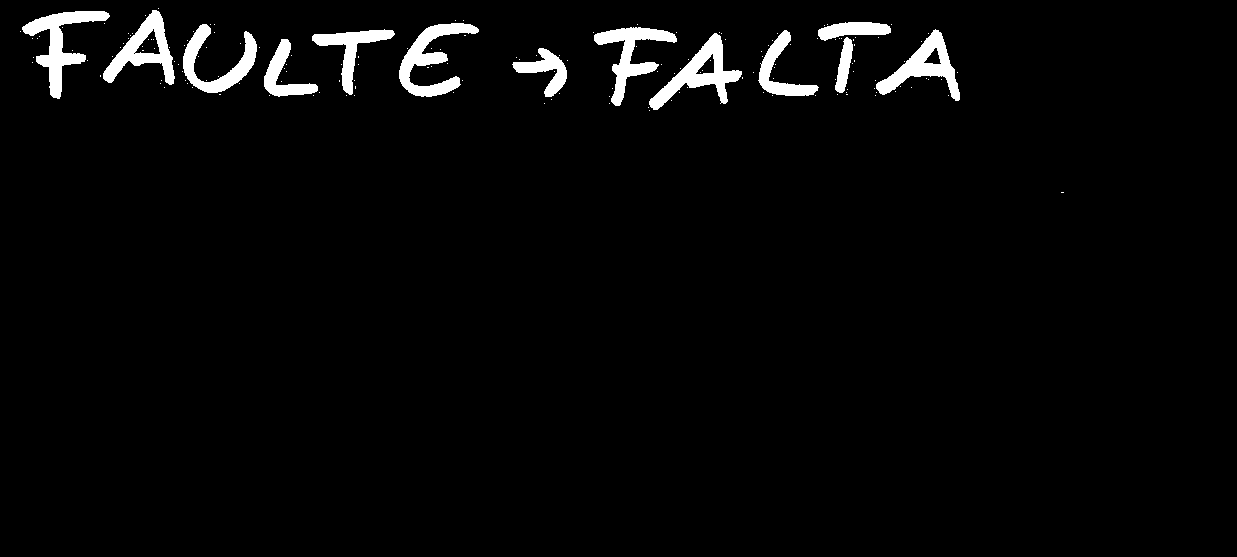 FAULTE → FALTA